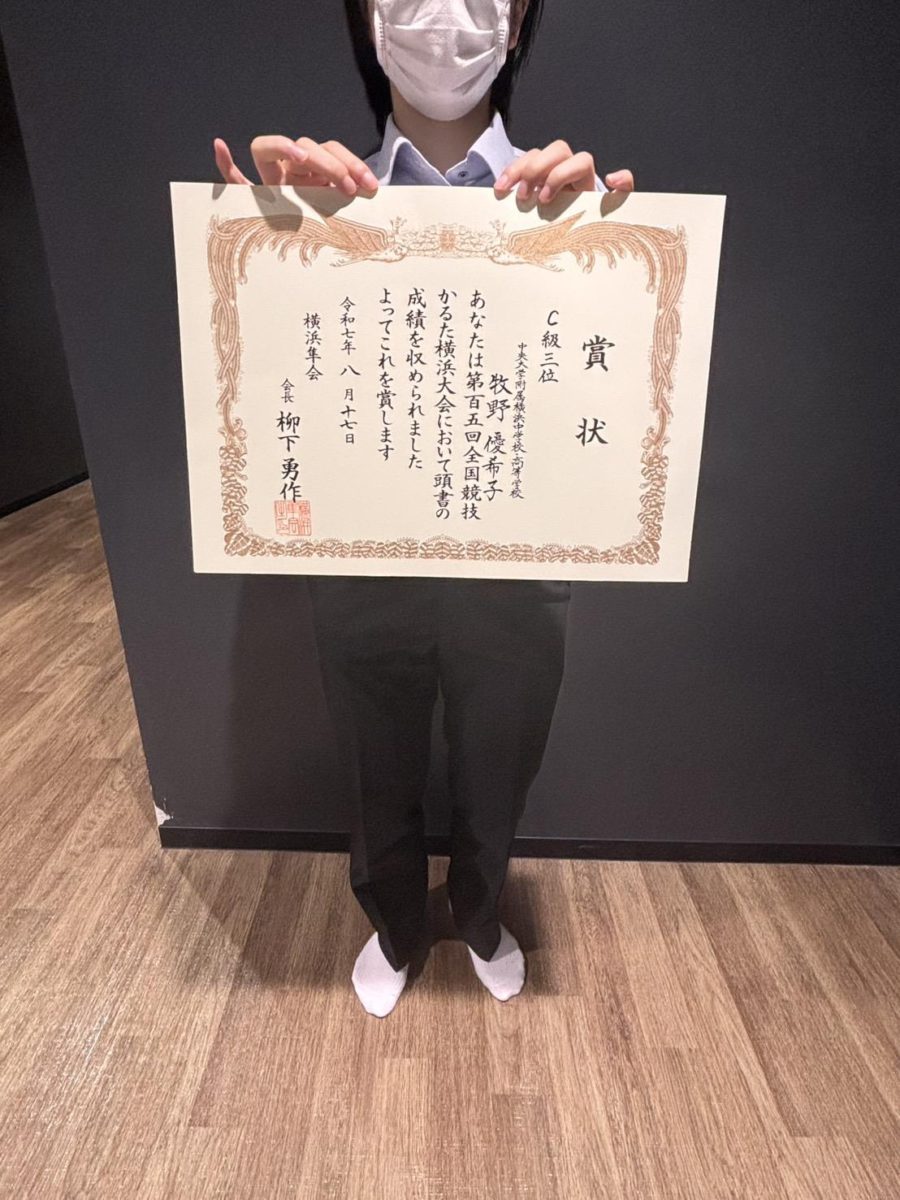 賞状
C級三位
中央大学附属横浜中学校・高等学校
牧野優希子
あなたは第百五回全国競技
かるた横浜大会において頭書の
成績を収められました
よってこれを賞します
令和七年八月十七日
横浜隼会
会長 柳下勇作